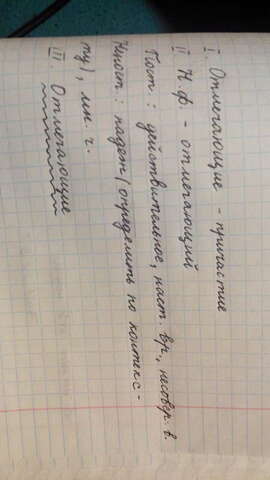 I. Отмечающие - причастие
II Н.ф. - отмечающий
Пост.: действительное, наст. вр., несовер. в.
Непост.: падеж (определить по контекс-
ту), мн. ч.
III Отмечающие